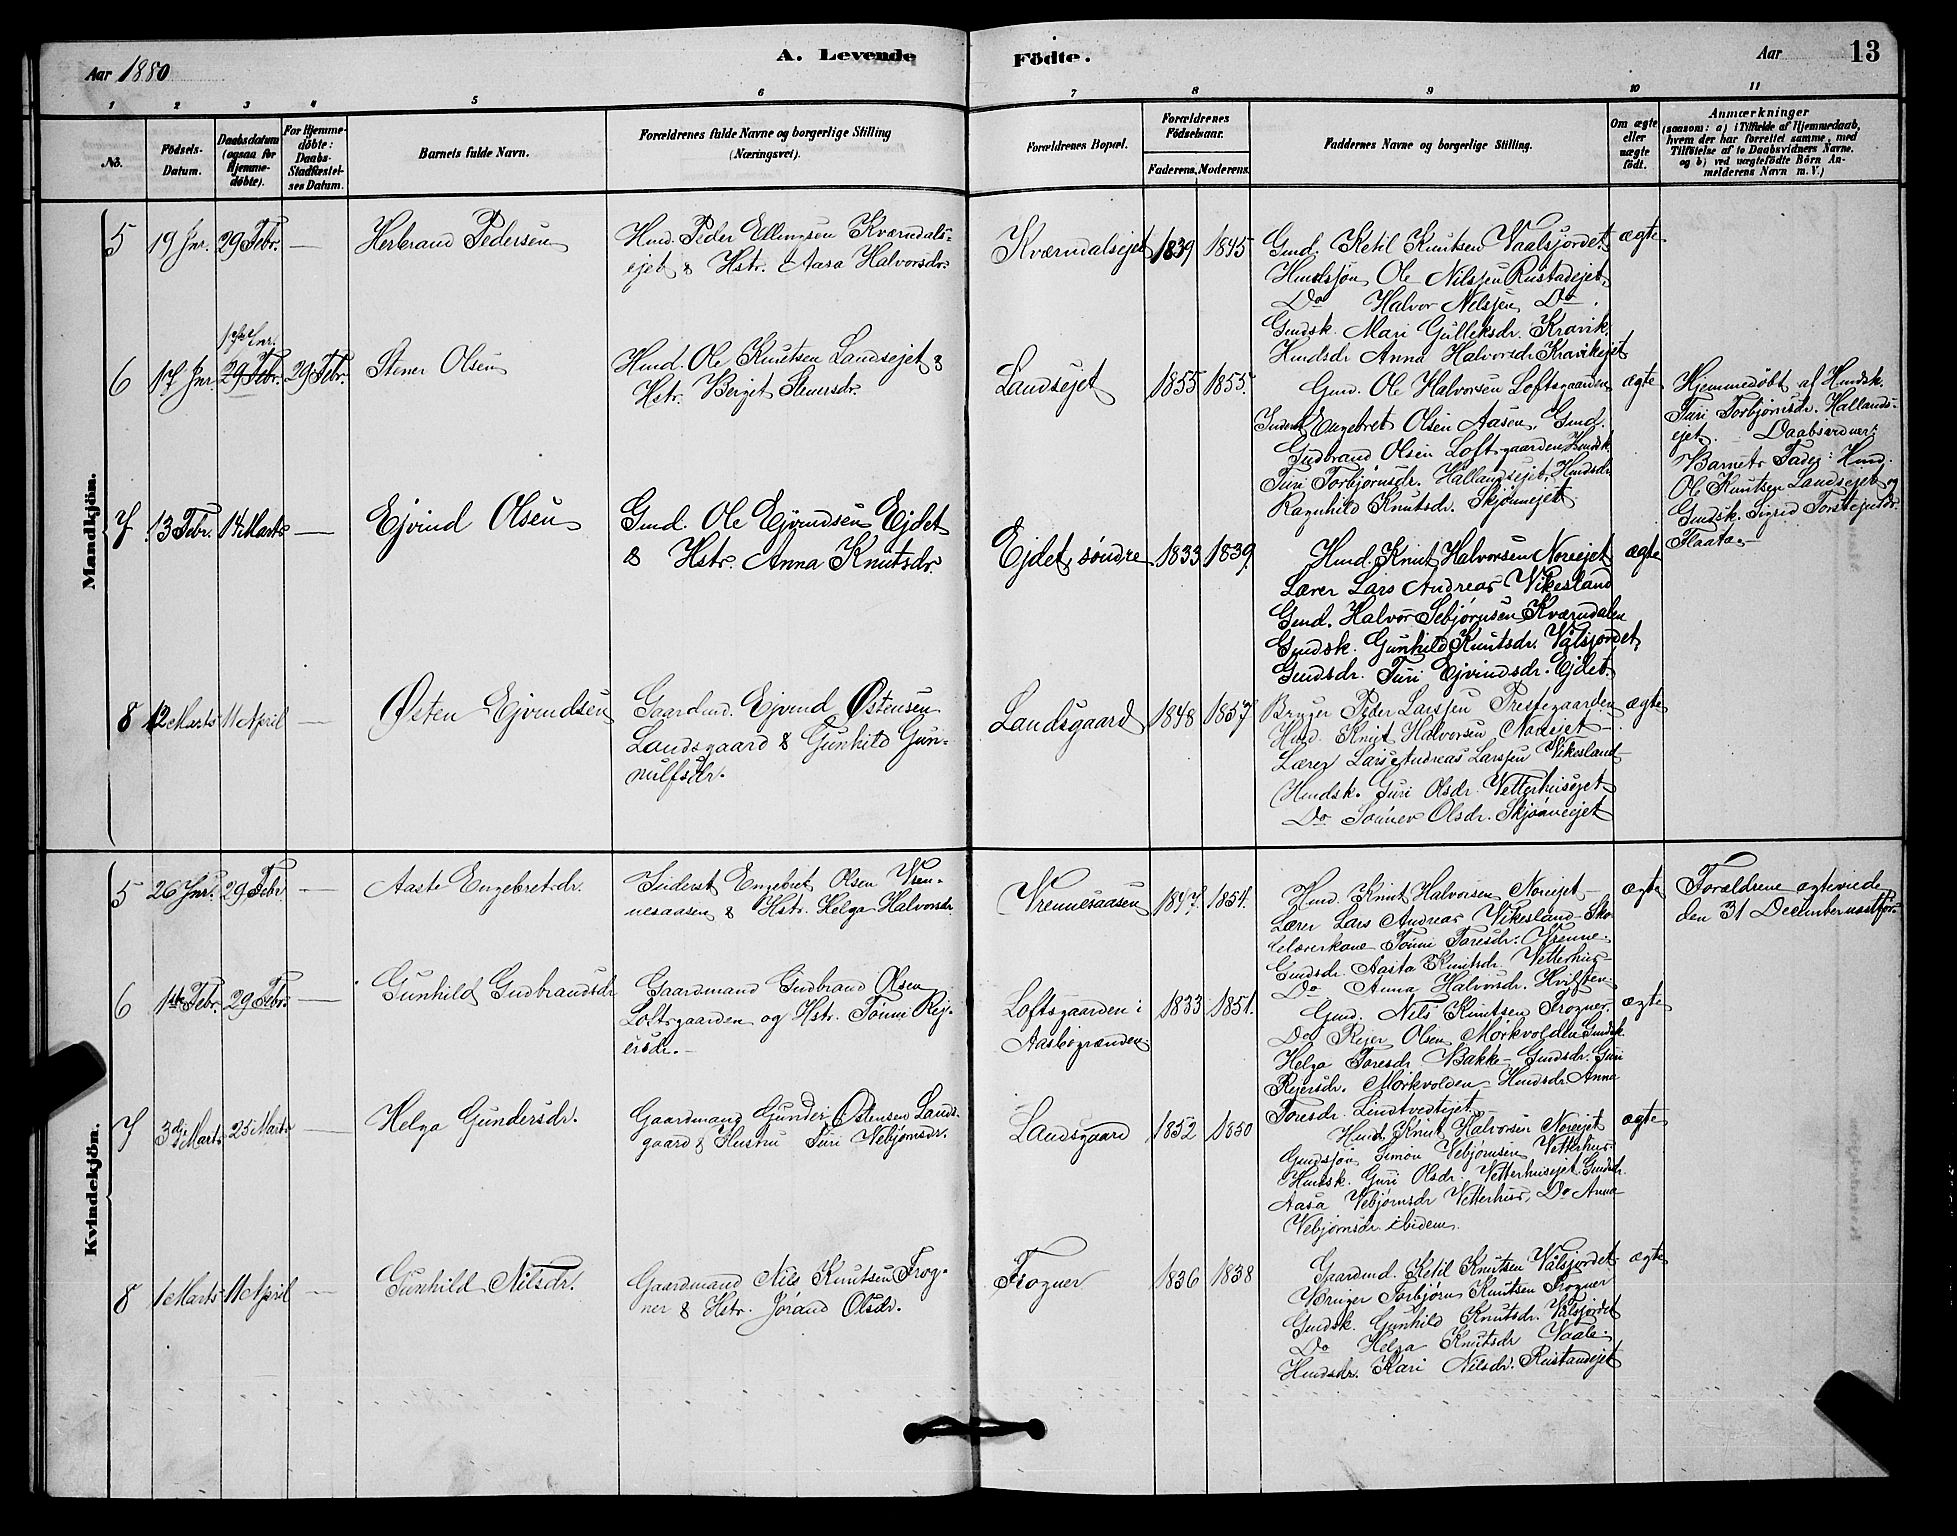 A. Levende Födte.
Aar 1880
Aar 13
1 2 3 4 5 6 7 8 9 10 11
No.
Födsels-Datum.
Daabsdatum (ogsaa for Hjemme-döbte).
For Hjemme-döbte: Daabs-Stadfæstel-ses Datum.
Barnets fulde Navn.
Forældrenes fulde Navne og borgerlige Stilling
(Næringsvei).
Forældrenes Bopæl.
Forældrenes Födselsaar.
Faderens. Moderens.
Faddernes Navne og borgerlige Stilling.
Om ægte eller uægte födt.
Anmærkninger
(saasom: a) i Tilfælde af Hjemmedaab,
hvem der har forrettet samme, med
Tilföielse af to Daabsvidners Navne.
og b) ved uægtefödte Börn An-
melderens Navn m. V.)
Mandkjön.
5 19 Jnr. 29 Febr. —
Herbrand Pedersen
Hmd. Peder Ellingsen Kværndals-
ejet & Hstr. Aasa Halvorsdr.
Kværndalsejet 1839 1845
Gmd. Ketil Knutsen Vaalsjordet
Hmdssjøn Ole Nilssen Rustadejet.
Do Halvor Nilssen Do.
Gmdsk. Mari Gulleksdr. Kravik.
Hmdsdr Anna Halvorsdr Kravikejet
ægte
6 17 Jnr. 29 Febr. 29 Febr.
Stener Olsen
Hmd. Ole Knutsen Landsejet &
Hstr. Berget Stenersdr.
Landsejet 1855 1855.
Gmd. Ole Halvorsen Loftsgaarden
Inderst Engebret Olsen Aasen, Gmd.
Gudbrand Olsen Loftsgaarden Hmdsk
Turi Torbjørnsdr. Hallandsejet, Hmdsdr
Ragnhild Knutsdr. Skjønnejet
ægte
Hjemmedøbt af Hmdsk.
Turi Torbjørnsdr. Hallands-
ejet. Daabsvidner:
Barnets Fader: Hmd.
Ole Knutsen Landsejet og
Gmdsk. Sigrid Torstejnsdr.
Flaata.
7 13 Febr. 14 Marts —
Ejvind Olsen
Gmd. Ole Ejvindsen Ejdet
& Hstr. Anna Knutsdr.
Ejdet, søndre 1833 1839.
Hmd. Knut Halvorsen Noreejet
Lærer Lars Andreas Vikesland
Gmd. Halvor Sebjørnsen Kværndalen
Gmdsk. Gunhild Knutsdr. Vålsjordet,
Gmdsdr. Turi Ejvindsdr. Ejdet.
ægte
8 12 Marts 11 April —
Østen Ejvindsen
Gaardmd. Ejvind Østensen
Landsgaard & Gunhild Gun-
nulfsdr.
Landsgaard 1848 1857
Bruger Peder Larssen Prestegaarden
Hmd. Knut Halvorsen Noreejet
Lærer Lars Andreas Larssen Vikesland
Hmdsk. Guri Olsdr. Vetterhusejet
Do Sønnev Olsdr. Skjønneejet
ægte
Kvindekjön.
5 26 Jnr. 29 Febr —
Aaste Engebretsdr.
Inderst Engebret Olsen Vren-
nesaasen & Hstr. Helga Halvorsdr
Vrennesaasen 1847. 1854.
Hmd. Knut Halvorsen Noreejet
Lærer Lars Andreas Vikesland Sko-
lelærerkone Tonni Toresdr. Vrenne.
Gmdsdr. Aasta Knutsdr. Vetterhus
Do Anna Halvorsdr. Hvilsten.
ægte
Forældrene ægteviede
den 31 December næstfor:
6 1ste Febr. 29 Febr. —
Gunhild Gudbrandsdr
Gaardmand Gudbrand Olsen
Loftsgaarden og Hstr. Tonni Rej-
ersdr.
Loftsgaarden i
Aasbøgrænden
1833 1851.
Gmd. Nils Knutsen Frogner
Do Rejer Olsen Mørkvolden Gmdsk.
Helga Toresdr Bakke — Gmdsdr. Guri
Rejersdr. Mørkvolden — Hmdsdr Anna
Toresdr. Lindtvedtejet
ægte
7 3die Marts 25 Marts —
Helga Gundersdr.
Gaardmand Gunder Østensen Lands-
gaard & Hustru Turi Vebjørnsdr.
Landsgaard 1852 1850
Hmd Knut Halvorsen Noreejet
Gmdssjøn Simon Vebjørnsen Vetterhus
Hmdsk. Guri Olsdr. Vetterhusejet Gmdsdr.
Aasa Vebjørnsdr Vetterhus, Do Anna
Vebjørnsdr. ibidem.
ægte
8 1 Marts 11 April —
Gunhild Nilsdr.
Gaardmand Nils Knutsen Frog-
ner & Hstr. Jørand Olsdr.
Frogner 1836 1838
Gaardmd. Ketil Knutsen Vålsjordet
Bruger Torbjørn Knutsen Frogner
Gmdsk. Gunhild Knutsdr. Vålsjordet
Do Helga Knutsdr Vaale.
Hmdsdr. Kari Nilsdr. Rustandejet
ægte